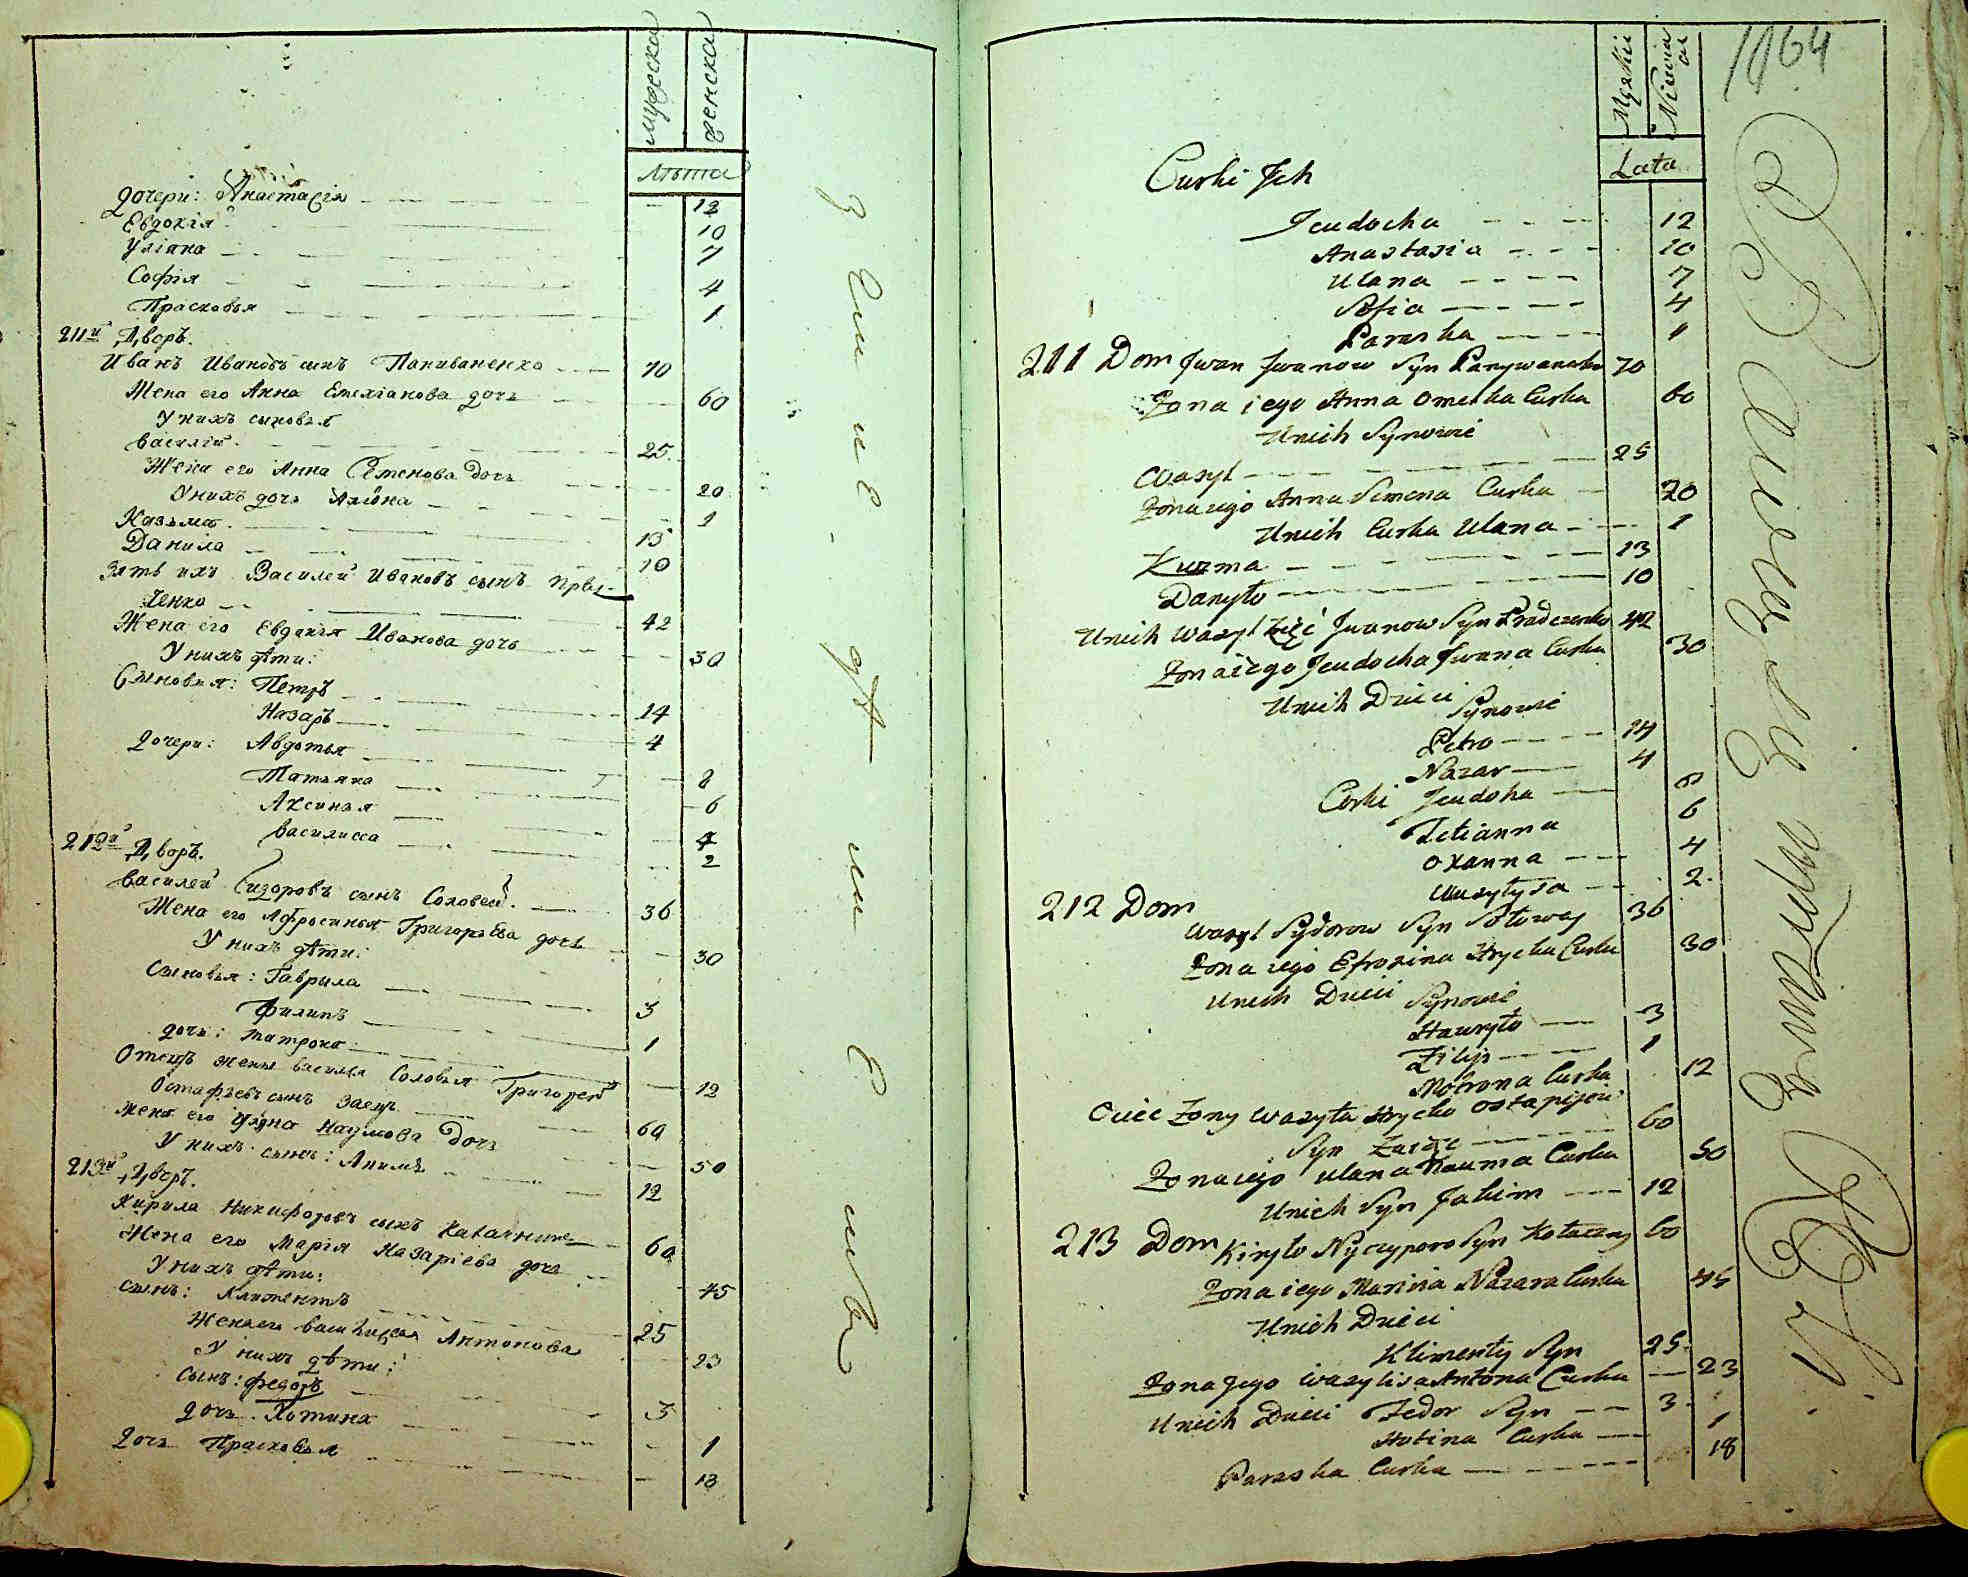 мужеска
женска
лѣта
дочери: Анастасія 12
Евдокія 10
Уліяна 7
Софія 4
Прасковья 1
211й Дворъ.
Иванъ Ивановъ сынъ Паниваненко 70
Жена его Анна Емельянова дочь 60
У нихъ сыновья
Василій 25
Жена его Анна Семенова дочь 20
У нихъ дочь 1
Казьма 13
Данила 10
Зять ихъ Василей Ивановъ сынъ
ченко 42
Жена его Евдокія Иванова дочь 30
У нихъ дѣти:
Сыновья: Петръ 14
Назаръ 4
дочери: Авдотья 8
Татьяна 6
Аксинья 4
Василисса 2
212й Дворъ.
Василей Сидоровъ сынъ Соловей 36
Жена его Афросинья Григорьева дочь 30
У нихъ дѣти:
Сыновья: Гаврила 3
Филипъ 1
дочь: Матрона 12
Отецъ жены Василья Соловья Григорей
Остафьевъ сынъ Заецъ 60
Жена его Наумова дочь 50
У нихъ сынъ: Акимъ 12
213й Дворъ.
Кирила Никифоровъ сынъ 60
Жена его Марія Назаріева дочь 45
У нихъ дѣти:
сынъ: Климентъ 25
Жена его Василисса Антонова 23
У нихъ дѣти:
Сынъ: Федоръ 3
дочь: Хотина 1
дочь Прасковья 18
1064
Męzkii
Lata
Curki Jch
Jeudocha 12
Anastasia 10
Ulana 7
Sofia 4
Paraska 1
211 Dom Jwan Jwanow Syn Panywanenko 70
Żona jego Anna Omelka Curka 60
Unich Synowie
Wasyl 25
Żona iego Anna Semena Curka 20
Unich Curka Ulana 1
Kuzma 13
Danyło 10
Unich Wasyl Zięć Jwanow Syn Pradczenko 42
Żona iego Jeudocha Jwana Curka 30
Unich Dzieci Synowie
Petro 14
Nazar 4
Corki Jeudoha 8
Tetianna 6
Oxanna 4
Wasylysa 2
212 Dom
Wasyl Sydorow Syn Sołowey 36
Żona iego Efrozina Hrycka Curka 30
Unich Dzieci Synowie
Hawryło 3
Filip 1
Motrona Curka 12
Ociec Żony Wasyla Hrycko Ostapijow
Syn Zaięc 60
Żona iego Ulana Nauma Curka 50
Unich Syn Jakim 12
213 Dom Kiryło Nyczyporo Syn Kołaczny 60
Żona iego Marina Nazara Curka 45
Unich Dzieci
Klimenty Syn 25
Żona Jego Wasylisa Antona Curka 23
Unich Dzieci Fedor Syn 3
Hotina Curka 1
Paraska Curka 18